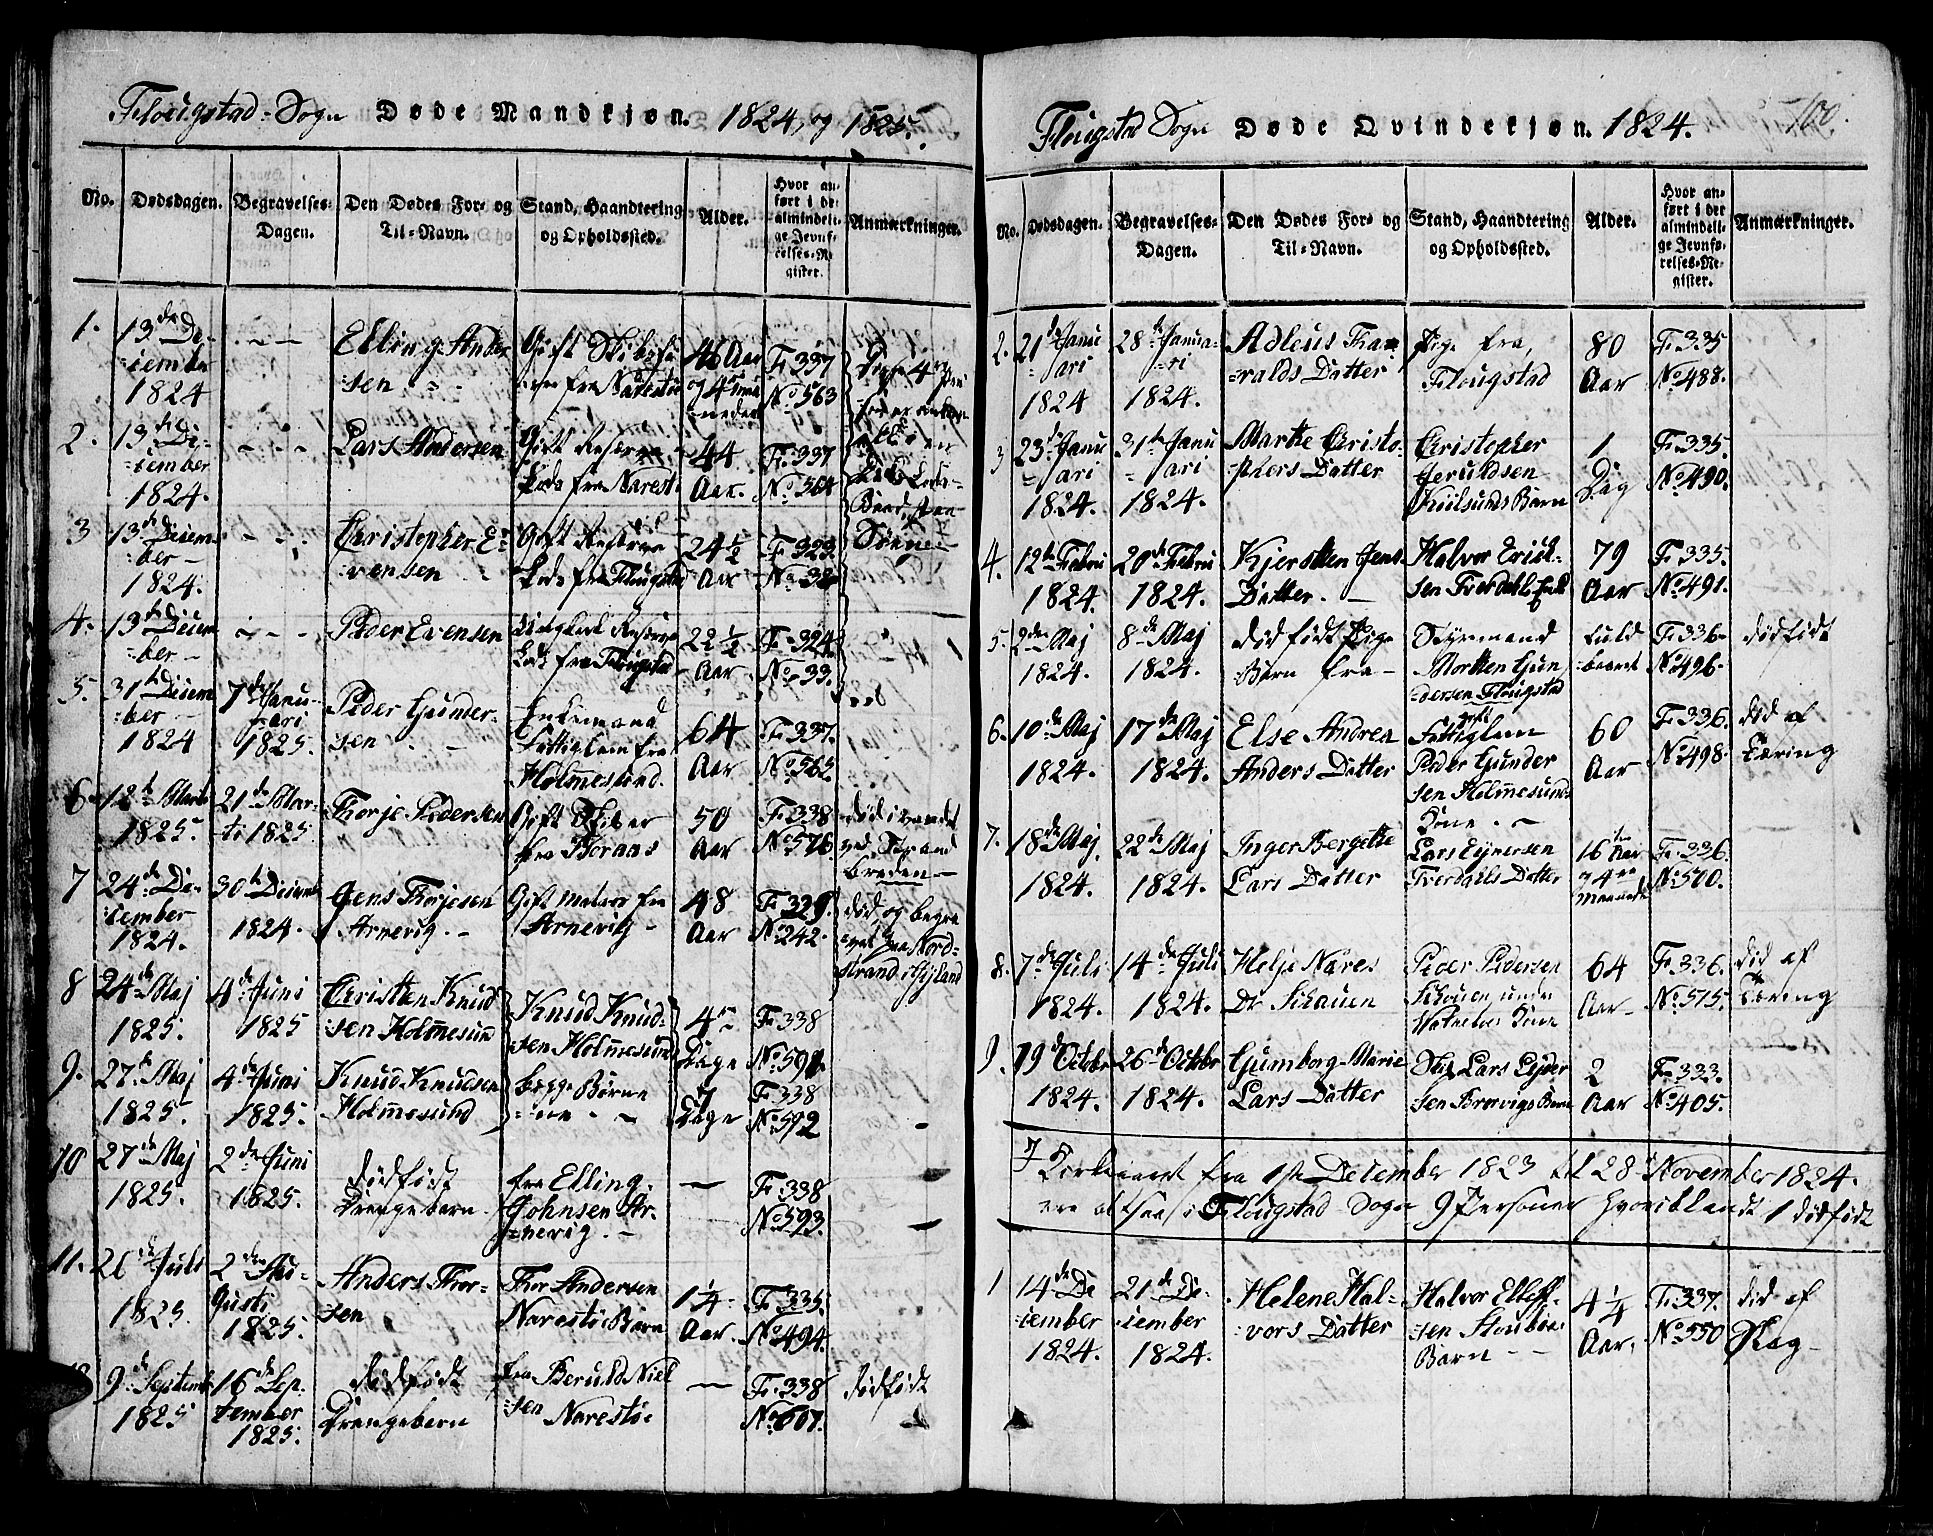 Flougstad Sogn Døde Mandkjøn. 1824, og 1825.
No.
Dødsdagen.
Begravelses-
Dagen.
Den Dødes For- og
Til-Navn.
Stand, Haandtering
og Opholdssted.
Alder.
Hvor an-
ført i det
almindeli-
ge Jevnfø-
relses-Re-
gister.
Anmærkninger.
1.
13de De-
cember
1824
Elling Ander
sen
Gift
fra Narestø
46 Aar
og 4re maa
neder
F: 337
No 563
2.
13de De-
cember
1824.
Lars Andersen
Gift
Lods fra Narestø
44
Aar.
F: 337
No 564
3
13de Decem
ber
1824.
Christopher E-
vensen
Gift
Lods fra Flougstad
24 1/2
Aar
F: 323.
No 38
4.
13de Decem
ber
1824.
Peder Evensen
Lods fra Flougstad
22 1/2
Aar
F: 324.
No 33.
5.
31te Decem
ber
1824
7de Janu-
ari
1825.
Peder Gunder-
sen
Enkemand
Fattiglem fra
Holmesund.
64
Aar
F: 337.
No 565
6.
12te Marti
1825.
21de Mar-
ti 1825.
Thorje Pedersen
Gift
fra Boraas
50
Aar
F: 338
No 576.
død i vandet
ved Strand
breden
7
24de De-
cember
1824.
30te Decemb
1824.
Jens Thorjesen
Arnevig.
Gift Matros fra
Arnevig
48
Aar
F: 329.
No 242.
død og begra
vet paa Nord-
strand i Jyland
8
24de Maj
1825.
4de Juni
1825
Christen Knud
sen Holmesund
Knud Knud-
sen Holmesund
4re
Dage
F: 338
No 591.
9.
27de Maj
1825.
4de Juni
1825.
Knud Knudsen
Holmesund
begge Børne
ne
7
Dage
F: 338
No 592
10
27de Maj
1825.
2de Juni
1825.
dødfødt
Drengebarn.
fra Elling
Johnsen Ar-
nevig.
F: 338
No 593.
11.
1825.
2de Au-
gusti
1825.
Anders Thor-
sen
Thor Andersen
Narestø Barn
1 1/4
Aar.
F: 335.
No 494.
9de Septemb
1825
16de Sep-
tember
1825.
dødfødt
Drengebarn
fra Beruld Niel
sen Narestø
F: 338
No 607.
dødfødt
Flougstad Sogn Døde Qvindekjøn. 1824.
100.
No.
Dødsdagen.
Begravelses-
Dagen.
Den Dødes For- og
Til-Navn.
Stand, Haandtering
og Opholdssted.
Alder.
Hvor an-
ført i det
almindeli-
ge Jevnfø-
relses-Re-
gister.
Anmærkninger.
2.
21de Janu
ari
1824
28de Janua-
ri
1824.
Adleus Tha-
ralds Datter
Pige fra
Flougstad
80
Aar
F: 335
No 488.
3
23de Janu
ari
1824.
31te Janu
ari
1824.
Marthe Christo-
phers Datter
Christopher
Jeruldsen
Kiilsunds Barn
1
Dag
F: 335.
No 490.
4.
12te Febru
1824.
20de Febru
1824.
Kjersten Jens
Datter.
Halvor Erick-
sen Tverdahls Enke
79
Aar
F: 335.
No 491.
5.
2den Maj
1824.
8de Maj
1824.
dødfødt Pige
Barn fra
Styrmand
Morten Gun
dersen Flougstad
fuld
baaret
F: 336
No 496.
dødfødt
6.
10de Maj
1824.
17de Maj
1824.
Else Andrea
Anders Datter
Fattiglem
Peder Gunder
sen Holmesunds
Kone.
60
Aar
F: 336.
No 498.
død af
Tæring
7.
18de Maj
1824.
22de Maj
1824.
Inger Bergette
Lars Datter
Lars Ejversen
Tverdahls Datter
16 Aar
og 4re
Maaneder
F: 336.
No 500.
8.
7de Juli
1824.
14de Juli
1824.
Helje Nares
Dr Schauen
Peder Pedersen
Schouen under
Kone
64
Aar
F: 336.
No 515.
død af
Tæring
9.
19de Octobr
1824.
26de Octobr
1824.
Gumborg Marie
Lars Datter
Lars Ejver
sen Brævigs Barn
2
Aar
F: 333.
No 405.
Kirkeaaret fra 1ste December 1823 til 28de November 1824.
ere altsaa i Flougstad Sogn 9 Personer hvoriblandt 1 dødfødt
1
14de De
cember
1824.
21de De-
cember
1824.
Helene Hal-
vors Datter
Halvor Elleff-
sen Stoubøe
Barn
4 1/4
Aar.
F: 337.
No 550
død af